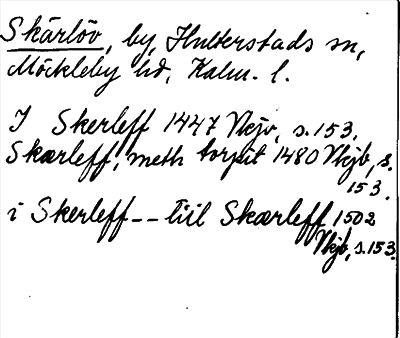 Skärlöv, by, Hulterstads sn,
Möckleby hd, Kalm. l.
I Skerleff 1447 Vkjb, s.153.
Skærleff, meth torput 1480 Vkjb, s.
153.
i Skerleff -- till Skærleff 1502
Vkjb, s.153.